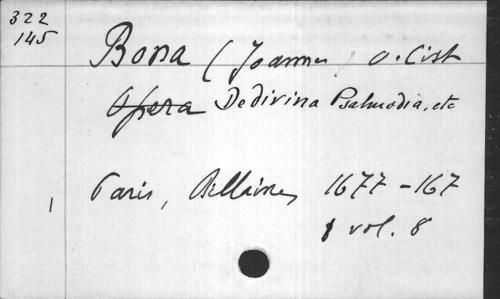 322
145
Bona (Joannes) o. Cist
Opera De divina Psalmodia, etc
1 Paris, Billaine, 1677-167
1 vol. 8